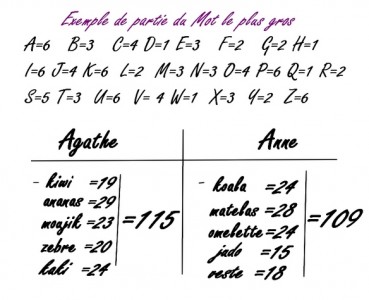 Exemple de partie du Mot le plus gros
A=6 B=3 C=4 D=1 E=3 F=2 G=2 H=1
I=6 J=4 K=6 L=2 M=3 N=3 O=4 P=6 Q=1 R=2
S=5 T=3 U=6 V= 4 W=1 X=3 Y=2 Z=6
Agathe Anne
- kiwi =19
ananas =29
moujik =23
zebre =20
kali =24
=115
- koala =24
matelas =28
omelette =24
judo =15
veste =18
=109